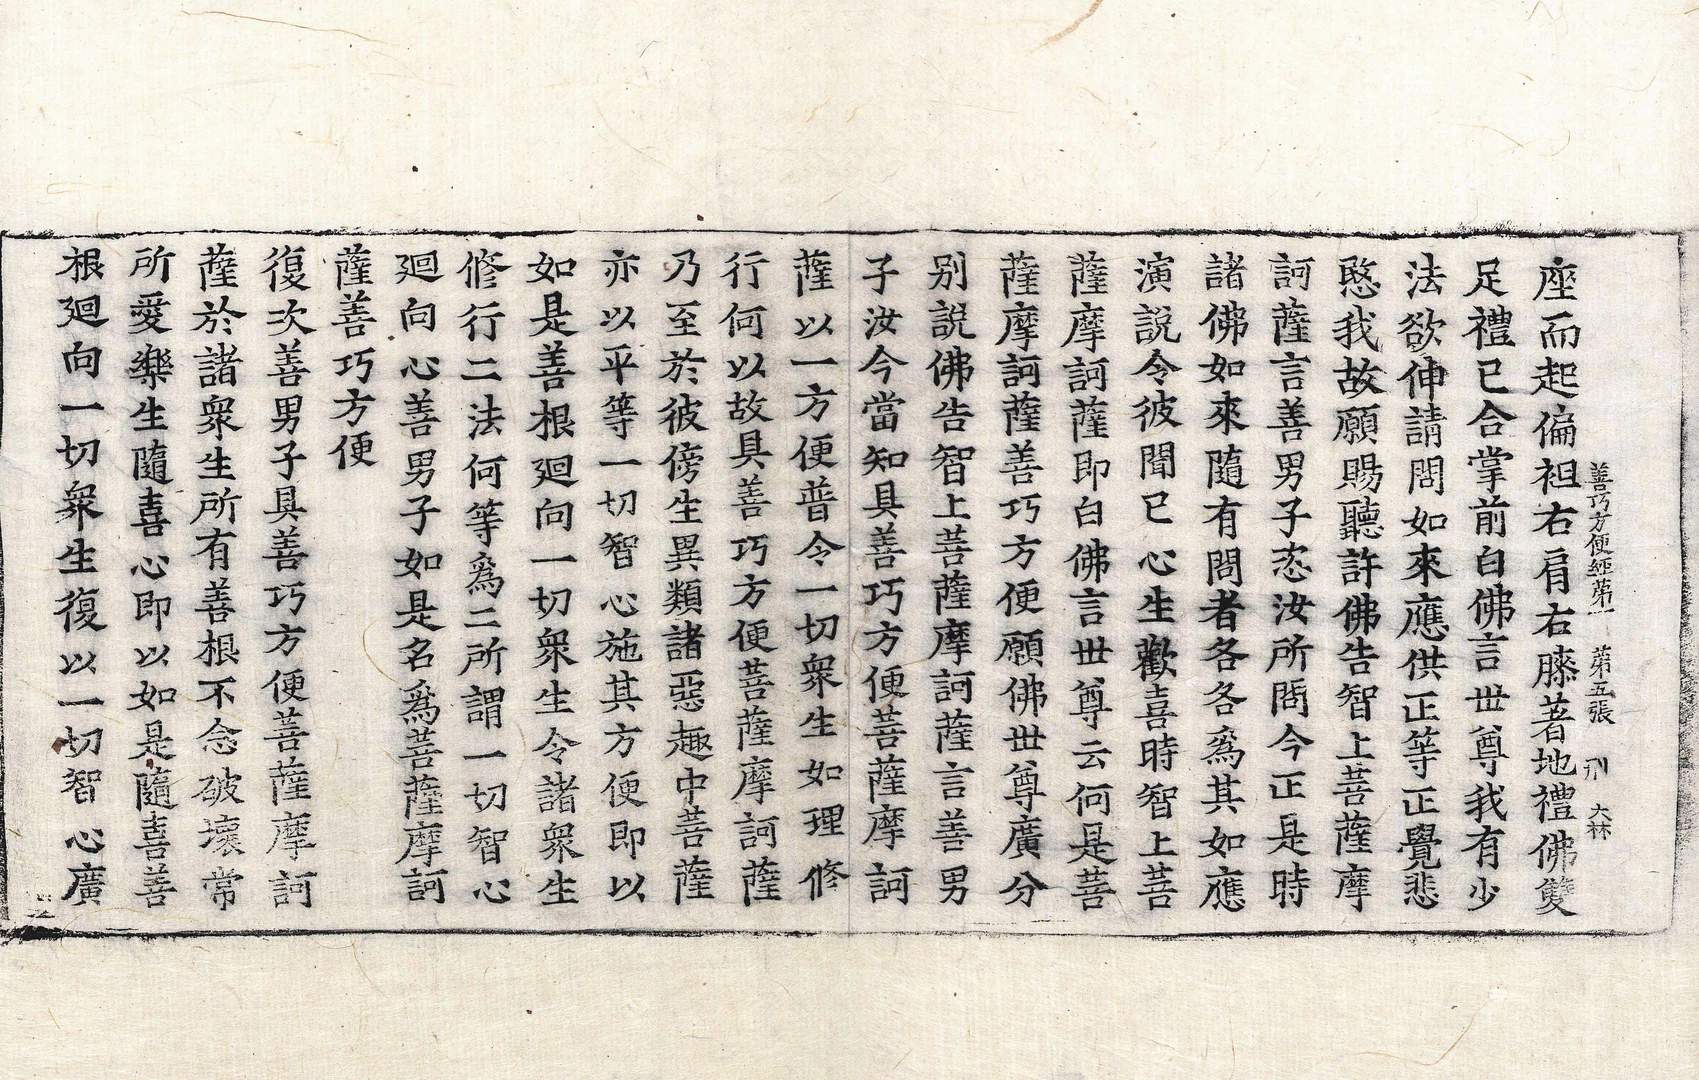 善巧方便經第一　第五張　刑　大林
座而起偏袒右肩右膝著地禮佛雙
足禮已合掌前白佛言世尊我有少
法欲伸請問如來應供正等正覺悲
愍我故願賜聽許佛告智上菩薩摩
訶薩言善男子恣汝所問今正是時
諸佛如來隨有問者各各爲其如應
演說令彼聞已心生歡喜時智上菩
薩摩訶薩即白佛言世尊云何是菩
薩摩訶薩善巧方便願佛世尊廣分
別說佛告智上菩薩摩訶薩言善男
子汝今當知具善巧方便菩薩摩訶
薩以一方便普令一切衆生如理修
行何以故具善巧方便菩薩摩訶薩
乃至於彼傍生異類諸惡趣中菩薩
亦以平等一切智心施其方便即以
如是善根廻向一切衆生令諸衆生
修行二法何等爲二所謂一切智心
廻向心善男子如是名爲菩薩摩訶
薩善巧方便
復次善男子具善巧方便菩薩摩訶
薩於諸衆生所有善根不念破壞常
所愛樂生隨喜心即以如是隨喜善
根廻向一切衆生復以一切智心廣